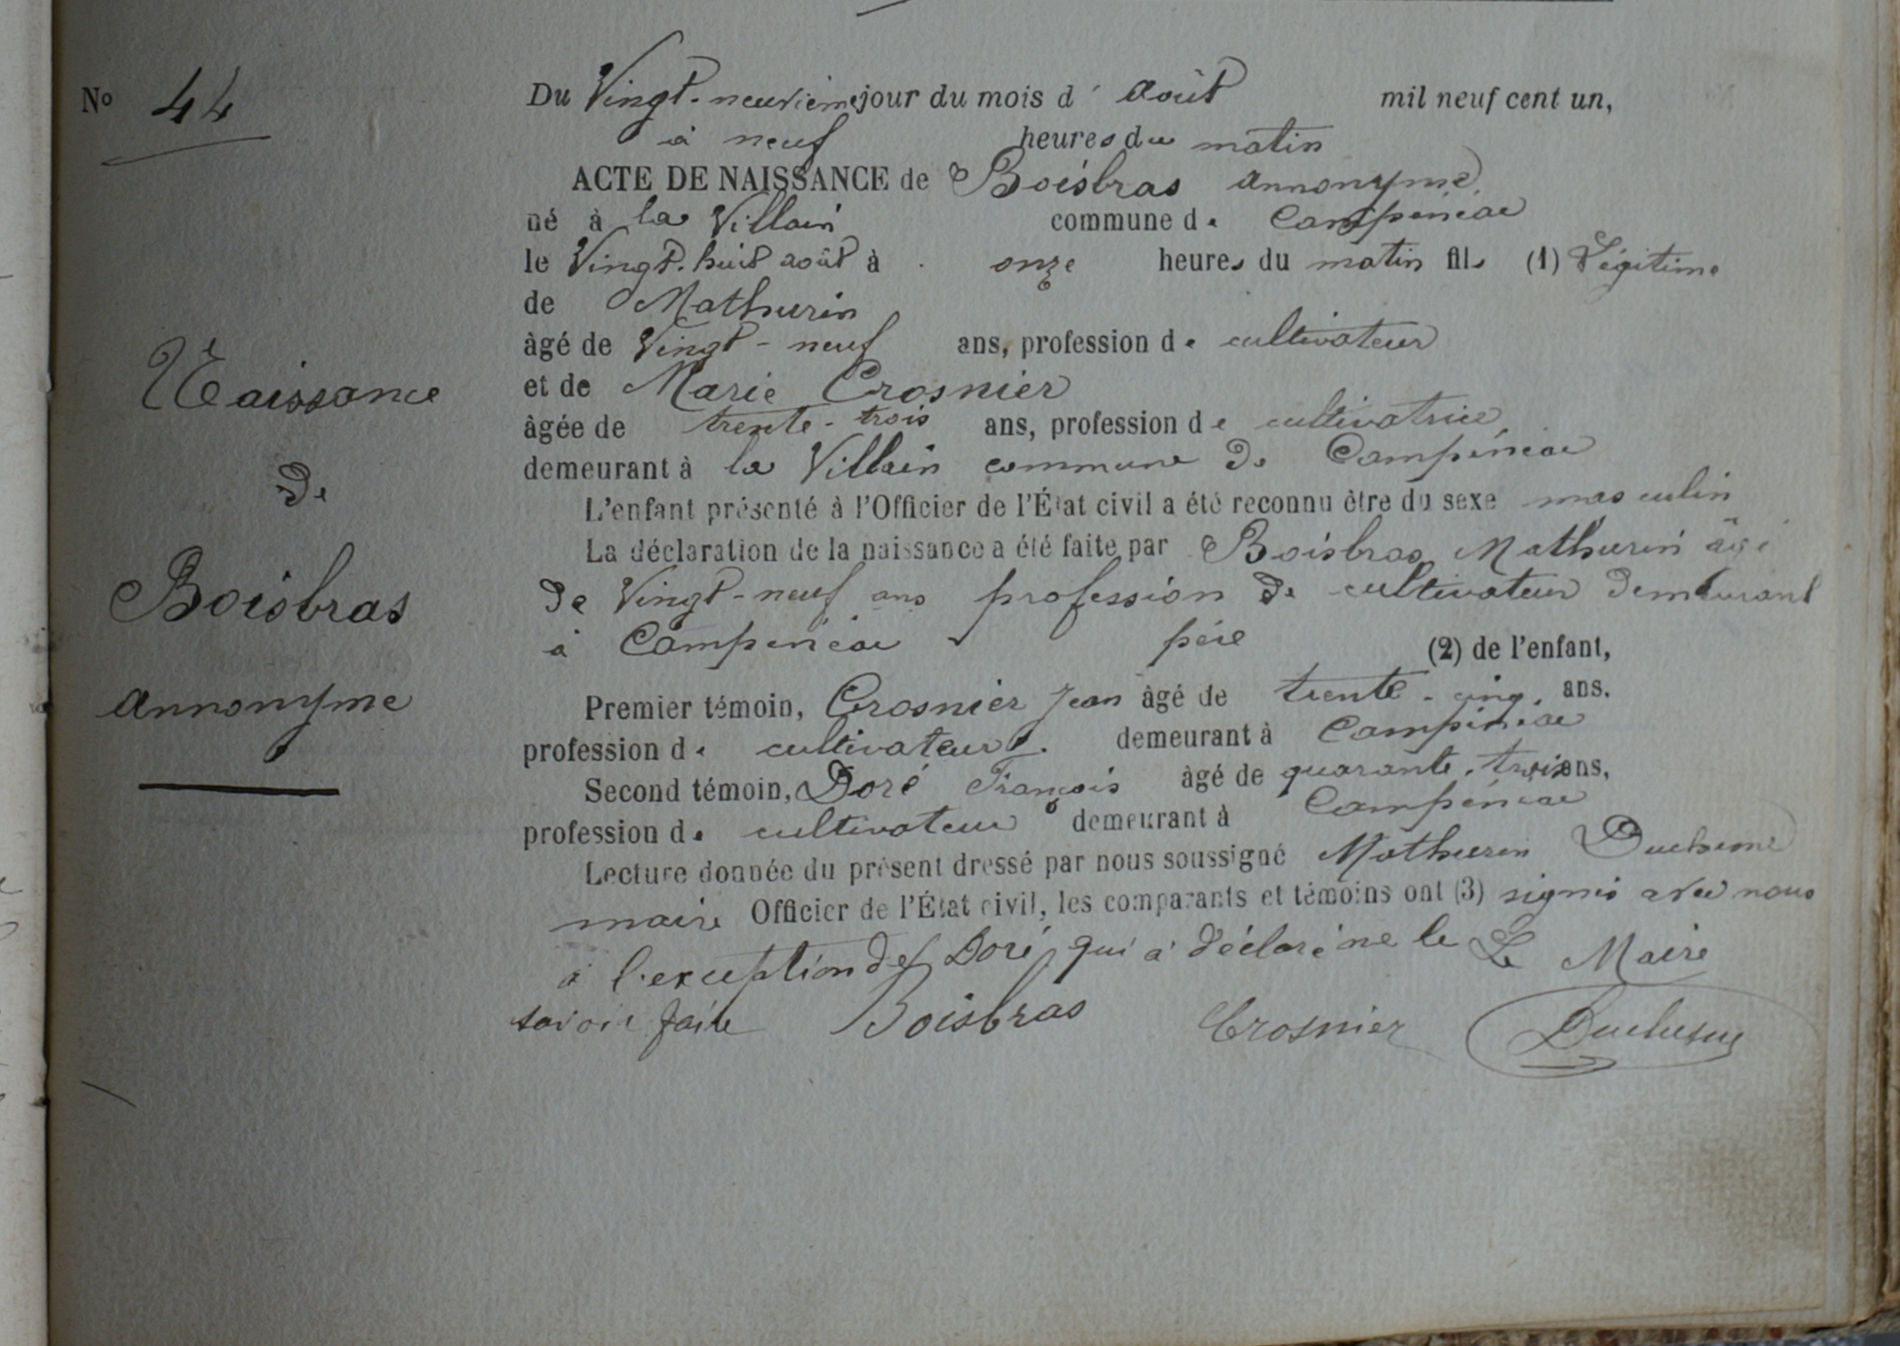 No 44
Du Vingt-neuvième jour du mois d' août mil neuf cent un,
à neuf heures du matin
ACTE DE NAISSANCE de Boisbras annonyme
né à la Villain commune de Campénéac
le Vingt-huit août à onze heures du matin fils (1) Légitime
de Mathurin
âgé de Vingt-neuf ans, profession de cultivateur
et de Marie Crosnier
âgée de trente-trois ans, profession de cultivatrice
demeurant à la Villain commune de Campénéac
L'enfant présenté à l'Officier de l'État civil a été reconnu être du sexe masculin
La déclaration de la naissance a été faite par Boisbras Mathurin âgé
de Vingt-neuf ans profession de cultivateur demeurant
à Campénéac père (2) de l'enfant,
Premier témoin, Crosnier Jean âgé de trente-cinq ans.
profession de cultivateur demeurant à Campénéac
Second témoin, Doré François âgé de quarante-trois ans,
profession de cultivateur demeurant à Campénéac
Lecture donnée du présent dressé par nous soussigné Mathurin
maire Officier de l'État civil, les comparants et témoins ont (3) signés avec nous
à l'exception de Doré qui a déclaré ne le Le Maire
savoir faire Boisbras Crosnier
Naissance
de
Boisbras
annonyme